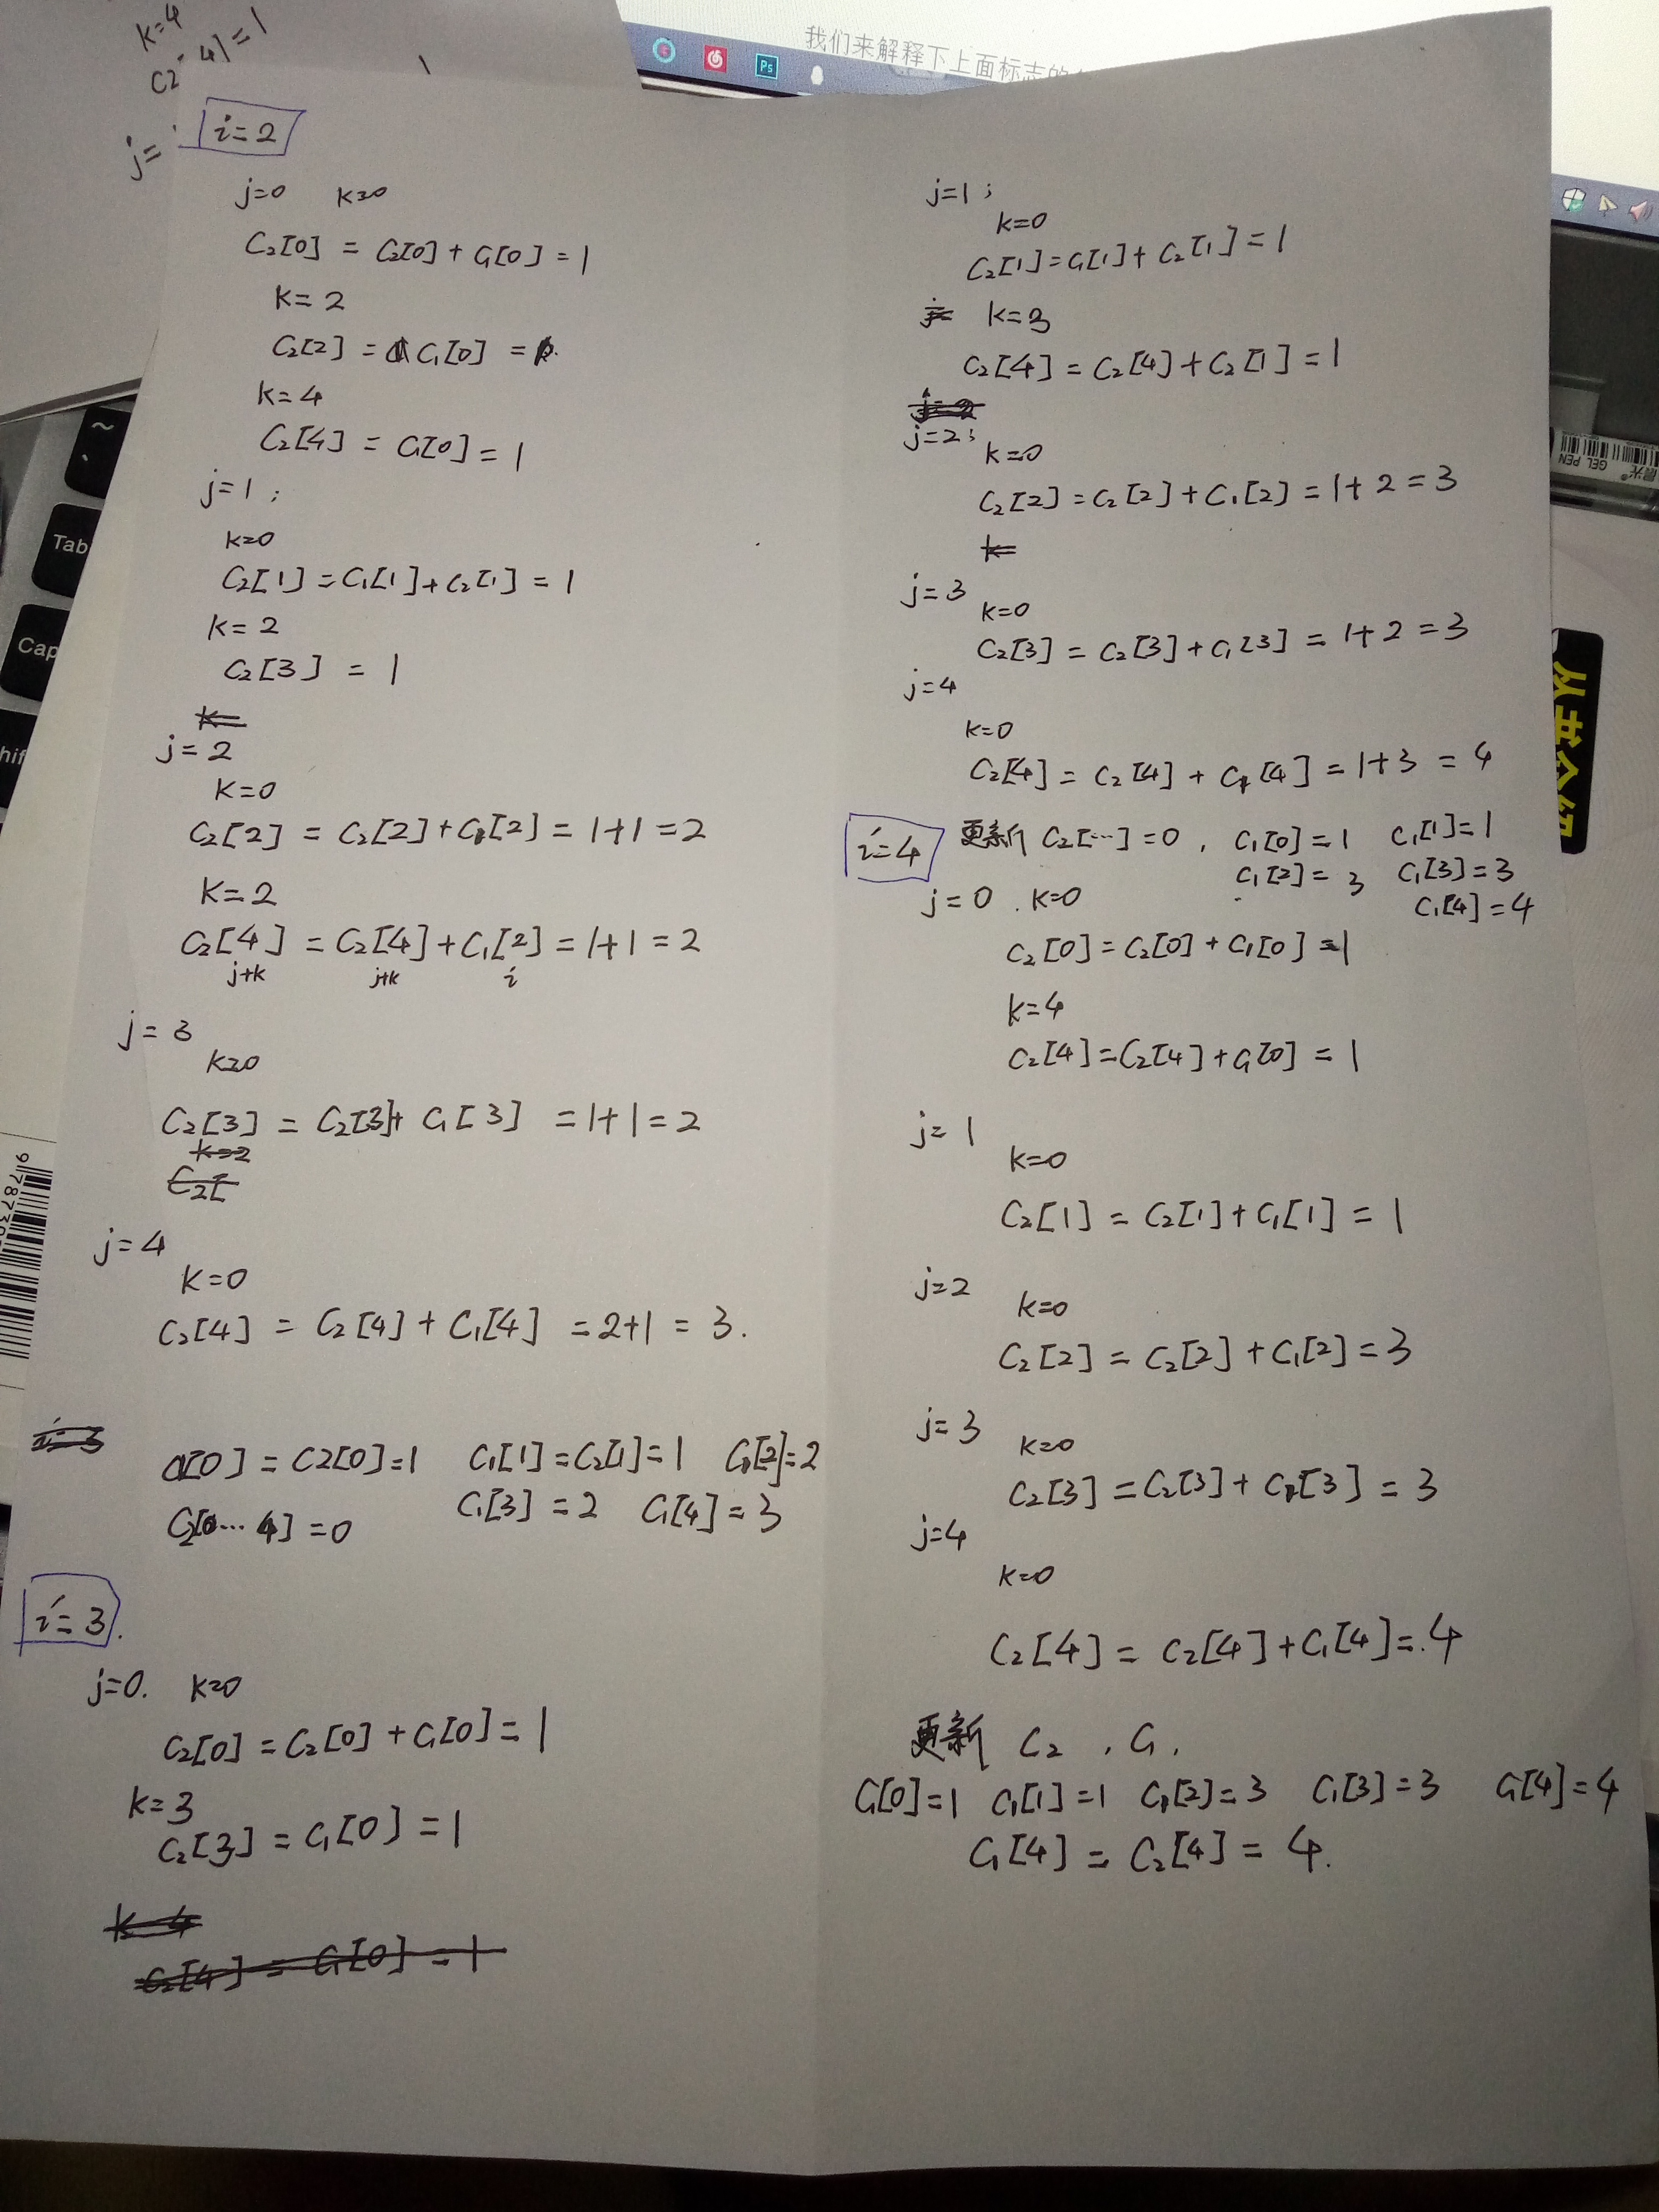 我们来解释下上面标志的
Ps
k=4
C2 4]=1
j=
i=2
j=0 k=0
C₂[0] = C₂[0] + C₁[0] = 1
k=2
C₂[2] = C₁[0] =
k=4
C₂[4] = C₁[0] = 1
j=1;
k=0
C₂[1] = C₁[1] + C₂[1] = 1
k=2
C₂[3] = 1
k=
j=2
k=0
C₂[2] = C₂[2] + C₁[2] = 1+1=2
k=2
C₂[4] = C₂[4] + C₁[2] = 1+1=2
j+k j+k i
j=3
k=0
C₂[3] = C₂[3] + C₁[3] = 1+1=2
k=2
C₂[
j=4
k=0
C₂[4] = C₂[4] + C₁[4] = 2+1 = 3.
i=3
C₁[0] = C2[0]=1 C₁[1]=C₂[1]=1 C₁[2]=2
C₁[3] = 2 C₁[4] = 3
C₂[0...4] = 0
i=3.
j=0. k=0
C₂[0] = C₂[0] + C₁[0] = 1
k=3
C₂[3] = C₁[0] = 1
k=4
C₂[4] = C₁[0] = 1
j=1;
k=0
C₂[1]=C₁[1]+C₂[1]=1
j= k=3
C₂[4] = C₂[4] + C₂[1] = 1
j=2
j=2;
k=0
C₂[2] = C₂[2] + C₁[2] = 1+2=3
k=
j=3
k=0
C₂[3] = C₂[3] + C₁[3] = 1+2=3
j=4
k=0
C₂[4] = C₂[4] + C₁[4] = 1+3 = 4
i=4 更新 C₂[...]=0, C₁[0]=1 C₁[1]=1
C₁[2]=3 C₁[3]=3
C₁[4]=4
j=0. k=0
C₂[0] = C₂[0] + C₁[0] = 1
k=4
C₂[4]=C₂[4]+C₁[0] = 1
j=1
k=0
C₂[1] = C₂[1] + C₁[1] = 1
j=2
k=0
C₂[2] = C₂[2] + C₁[2] = 3
j=3
k=0
C₂[3] = C₂[3] + C₁[3] = 3
j=4
k=0
C₂[4] = C₂[4] + C₁[4] = .4
更新 C₂, C₁,
C₁[0]=1 C₁[1]=1 C₁[2]=3 C₁[3]=3 C₁[4]=4
C₁[4] = C₂[4] = 4.
~
Tab
Cap
hif
GEL PEN
晨光